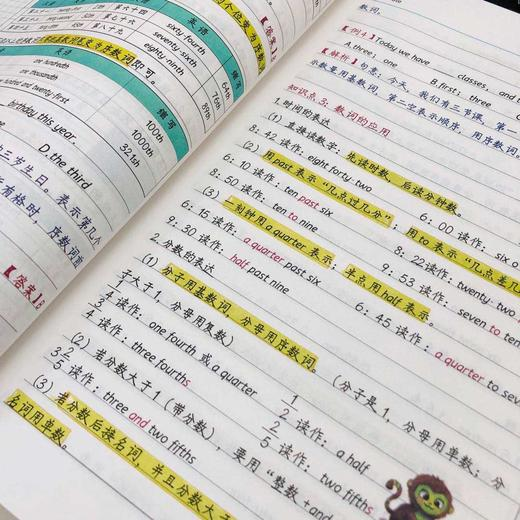 英语
缩写
第六十四
sixty fourth
64th
第七十六
seventy sixth
76th
第八十九
eighty-ninth
89th
序数词即可。
英语
缩写
one hundredth
100th
one thousandth
1000th
321st
【答案】
birthday this year.
D. the third
三岁生日。表示第几个
有格时,序数词前
【答案】B
数词。
【例1】Today we have ___ classes, and
A. three; one
B. first; three
【解析】句意:今天,我们有三节课,第一
示数量用基数词,第二空表示顺序,用序数词。
知识点3:数词的应用
1. 时间的表达
(1)直接读数字:先读时数,后读分钟数。
8:42 读作:eight forty-two
6:00 读作:six o
(2)用past表示“几点过几分”;用to表示“几点差几
6:10 读作:ten past six
8:50 读作:ten to nine
8:22 读作:twenty-two
(3)一刻钟用a quarter表示;半点用half表示。
6:15 读作:a quarter past six
9:53 读作:seven to ten
9:30 读作:half past nine
6:45 读作:a quarter to se
2. 分数的表达
(1)分子用基数词,分母用序数词。(分子是1,分母用单数;分
子大于1,分母用复数)
读作:one fourth 或 a quarter
1/2 读作:a half
3/4 读作:three fourths
2/5 读作:two fifths
(2)若分数大于1(带分数),要用“整数+and
3 2/5 读作:three and two fifths
(3)若分数后接名词,并且分数大于
名词用单数。